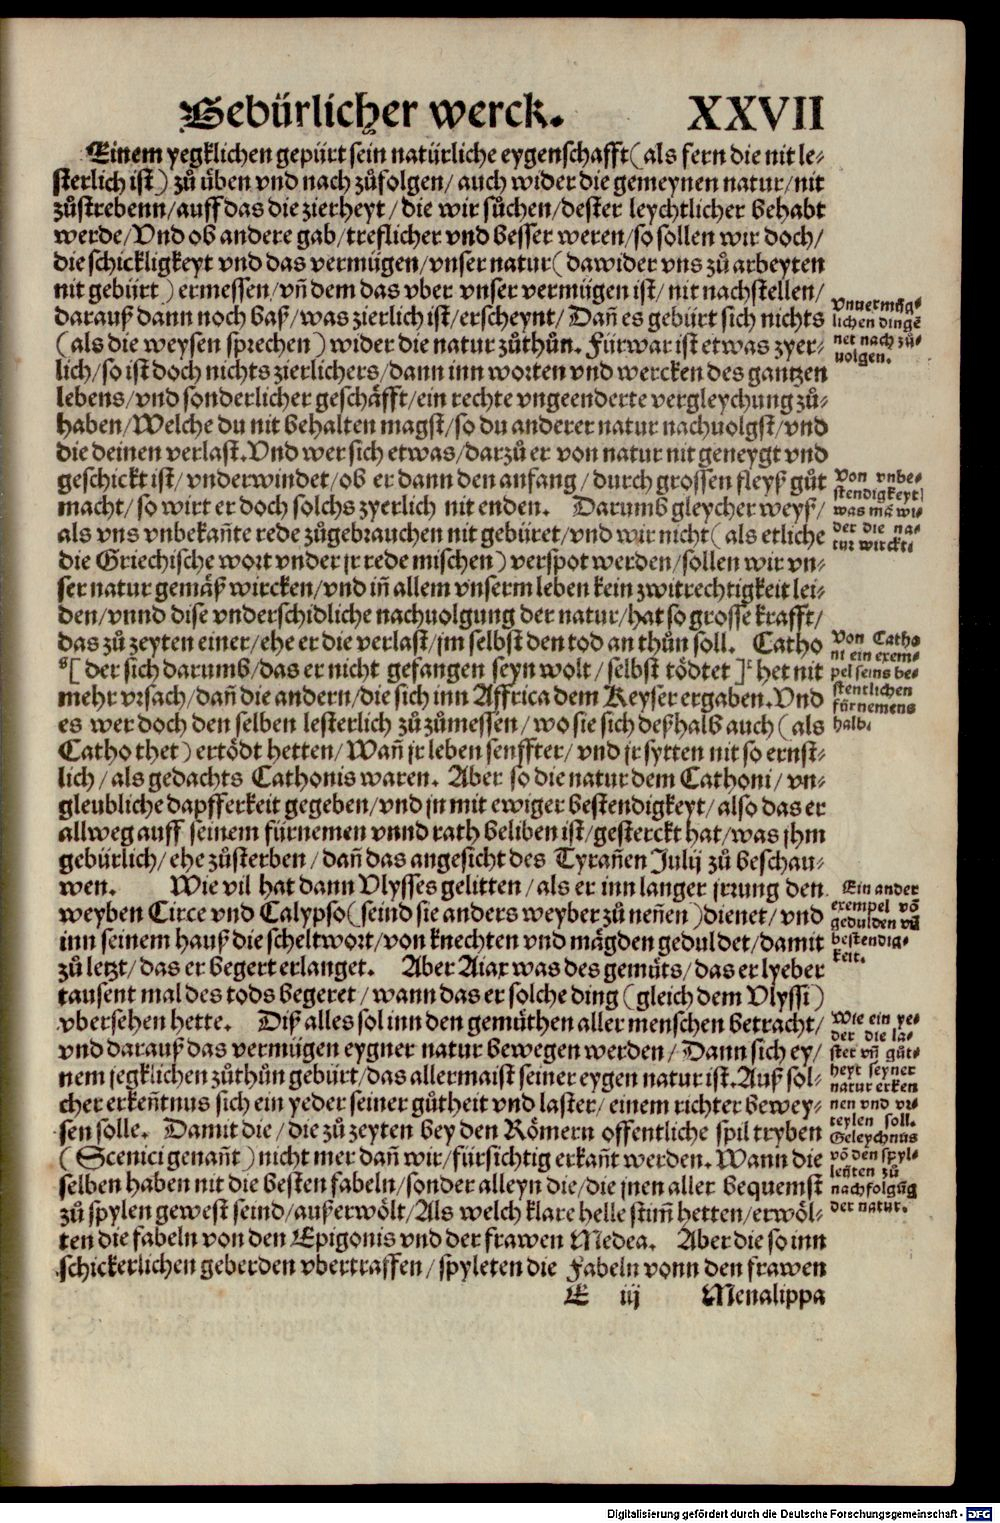 Gebürlicher werck. XXVII
Einem yegklichen gepürt sein natürliche eygenschafft (als fern die nit le-
sterlich ist) zů üben vnd nach zůfolgen/ auch wider die gemeynen natur/ nit
zůstrebenn/ auff das die zierheyt/ die wir sůchen/ dester leychtlicher behabt
werde/ Vnd ob andere gab/ treflicher vnd besser weren/ so sollen wir doch/
die schickligkeyt vnd das vermügen/ vnser natur (dawider vns zů arbeyten
nit gebürt) ermessen/ vñ dem das vber vnser vermügen ist/ nit nachstellen/
darauß dann noch baß/ was zierlich ist/ erscheynt/ Dañ es gebürt sich nichts
(als die weysen sprechen) wider die natur zůthůn. Fürwar ist etwas zyer-
lich/ so ist doch nichts zierlichers/ dann inn worten vnd wercken des gantzen
lebens/ vnd sonderlicher geschäfft/ ein rechte vngeenderte vergleychung zů-
haben/ Welche du nit behalten magst/ so du anderer natur nachuolgst/ vnd
die deinen verlast. Vnd wer sich etwas/ darzů er von natur nit geneygt vnd
geschickt ist/ vnderwindet/ ob er dann den anfang/ durch grossen fleyß gůt
macht/ so wirt er doch solchs zyerlich nit enden. Darumb gleycher weyß/
als vns vnbekañte rede zůgebrauchen nit gebüret/ vnd wir nicht (als etliche
die Griechische wort vnder jr rede mischen) verspot werden/ sollen wir vn-
ser natur gemäß wircken/ vnd iñ allem vnserm leben kein zwitrechtigkeit lei-
den/ vnnd dise vnderschidliche nachuolgung der natur/ hat so grosse krafft/
das zů zeyten einer/ ehe er die verlast/ jm selbst den tod an thůn soll. Catho
[der sich darumb/ das er nicht gefangen seyn wolt/ selbst tödtet] het nit
mehr vrsach/ dañ die andern/ die sich inn Affrica dem Keyser ergaben. Vnd
es wer doch den selben lesterlich zů zůmessen/ wo sie sich deßhalb auch (als
Catho thet) ertödt hetten/ Wañ jr leben senffter/ vnd jr sytten nit so ernst-
lich/ als gedachts Cathonis waren. Aber so die natur dem Cathoni/ vn-
gleubliche dapfferkeit gegeben/ vnd jn mit ewiger bestendigkeyt/ also das er
allweg auff seinem fürnemen vnnd rath beliben ist/ gesterckt hat/ was jhm
gebürlich/ ehe zůsterben/ dañ das angesicht des Tyrañen Julij zů beschau-
wen. Wie vil hat dann Vlysses gelitten/ als er inn langer jrrung den
weyben Circe vnd Calypso (seind sie anders weyber zů neñen) dienet/ vnd
inn seinem hauß die scheltwort/ von knechten vnd mägden geduldet/ damit
zů letzt/ das er begert erlanget. Aber Aiax was des gemůts/ das er lyeber
tausent mal des tods begeret/ wann das er solche ding (gleich dem Vlyssi)
vbersehen hette. Diß alles sol inn den gemüthen aller menschen betracht/
vnd darauß das vermügen eygner natur bewegen werden/ Dann sich ey-
nem jegklichen zůthůn gebürt/ das allermaist seiner eygen natur ist. Auß sol-
cher erkeñtnus sich ein yeder seiner gůtheit vnd laster/ einem richter bewey-
sen solle. Damit die/ die zů zeyten bey den Römern offentliche spil tryben
(Scenici genañt) nicht mer dañ wir/ fürsichtig erkañt werden. Wann die
selben haben nit die besten fabeln/ sonder alleyn die/ die jnen aller bequemst
zů spylen gewest seind/ außerwölt/ Als welch klare helle stim̃ hetten/ erwöl-
ten die fabeln von den Epigonis vnd der frawen Medea. Aber die so inn
schickerlichen geberden vbertraffen/ spyleten die Fabeln vonn den frawen
E iij Menalippa
Vnuermüg-
lichen dingẽ
net nach zů-
uolgen.
Von vnbe-
stendigkeyt/
was mã wi-
der die na-
tur wirckt.
Von Catho
ni ein exem-
pel seins be-
stentlichen
fürnemens
halb.
Ein ander
exempel võ
gedulden vñ
bestendig-
keit.
Wie ein ye-
der die la-
ster vñ gůt-
heyt seyner
natur erken
nen vnd vr-
teylen soll.
Geleychnus
võ den spyl-
leũten zů
nachfolgũg
der natur.
Digitalisierung gefördert durch die Deutsche Forschungsgemeinschaft - DFG